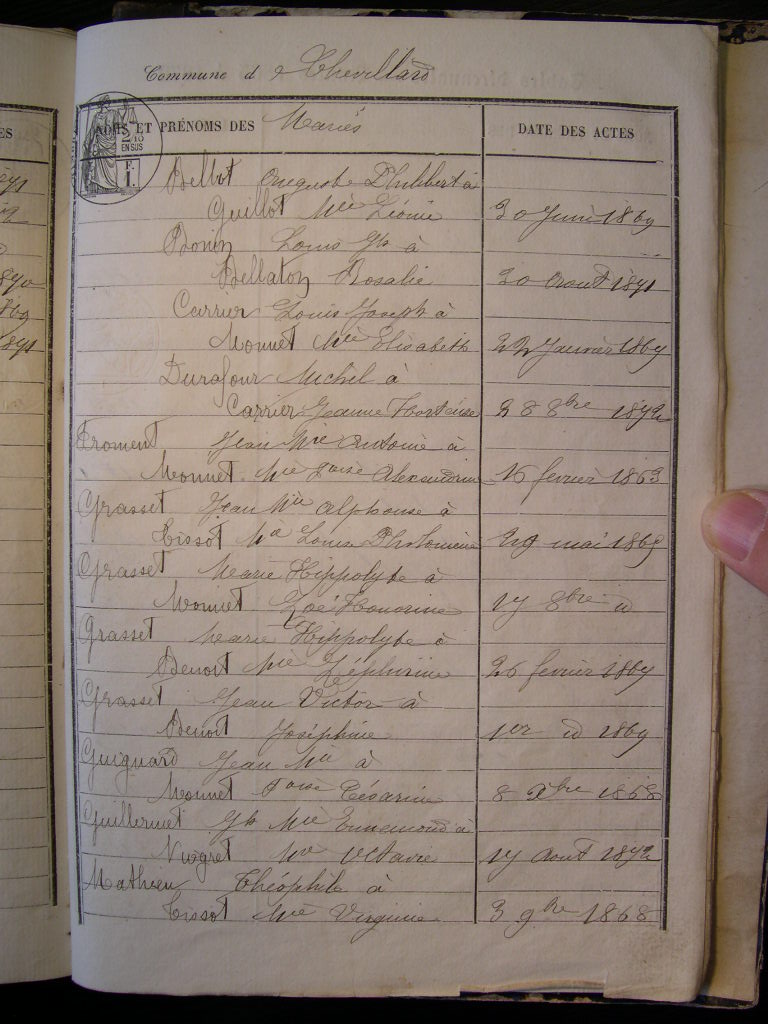 Commune de Chevillard
NOMS ET PRÉNOMS DES Mariés
DATE DES ACTES
2/10 EN SUS
F. 1.
Bellot Auguste Philibert à
Guillot Mie Léonie 30 Juin 1869
Bonin Louis Jh à
Bellaton Rosalie 30 Aout 1871
Carrier Louis Joseph à
Monnet Mie Elisabeth 22 Janvier 1867
Durafour Michel à
Carrier Jeanne Hortense 28 8bre 1872
Froment Jean Mie Antoine à
Monnet Mie Foise Alexandrine 16 fevrier 1863
Grasset Jean Mie Alphonse à
Tissot Ma Louise Philomène 29 mai 1865
Grasset Marie Hippolyte à
Monnet Zoé Honorine 17 8bre id
Grasset Marie Hippolyte à
Benoit Mie Zéphirine 26 fevrier 1867
Grasset Jean Victor à
Benoit Joséphine 1er id 1869
Guignard Jean Mie à
Monnet Foise Césarine 8 Xbre 1868
Guillermet Jh Mie Ennemond à
Nugret Mie Octavie 17 Aout 1872
Mathieu Théophile à
Tissot Mie Virginie 3 9bre 1868